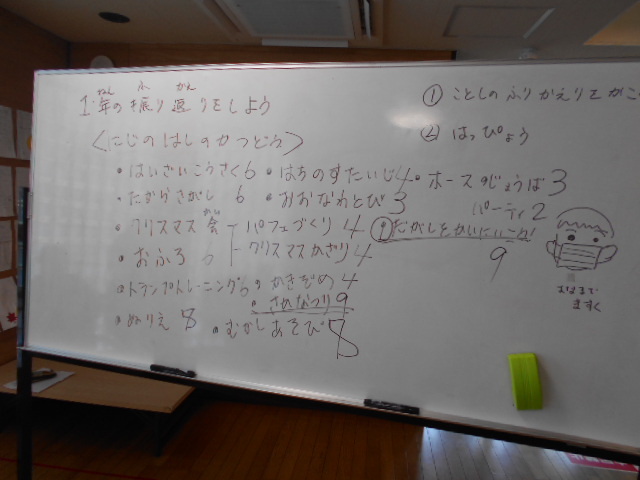 1年の振り返りをしよう
ねん ふ かえ
① ことしのふりかえりをかこ
② はっぴょう
〈にじのはしのかつどう〉
・はいざいこうさく6 ・はちのすたいじ4 ・ホースのじょうば3
・たからさがし 6 ・おおなわとび3 パーティ2
・クリスマス会 パフェづくり 4 ①だがしをかいにいこう!
かい
9
・おふろ 6 クリスマスかざり4
・トランプトレーニング6 ・かきぞめ4
・さかなつり9
・ぬりえ 8 ・むかしあそび8
おはまで
ますく